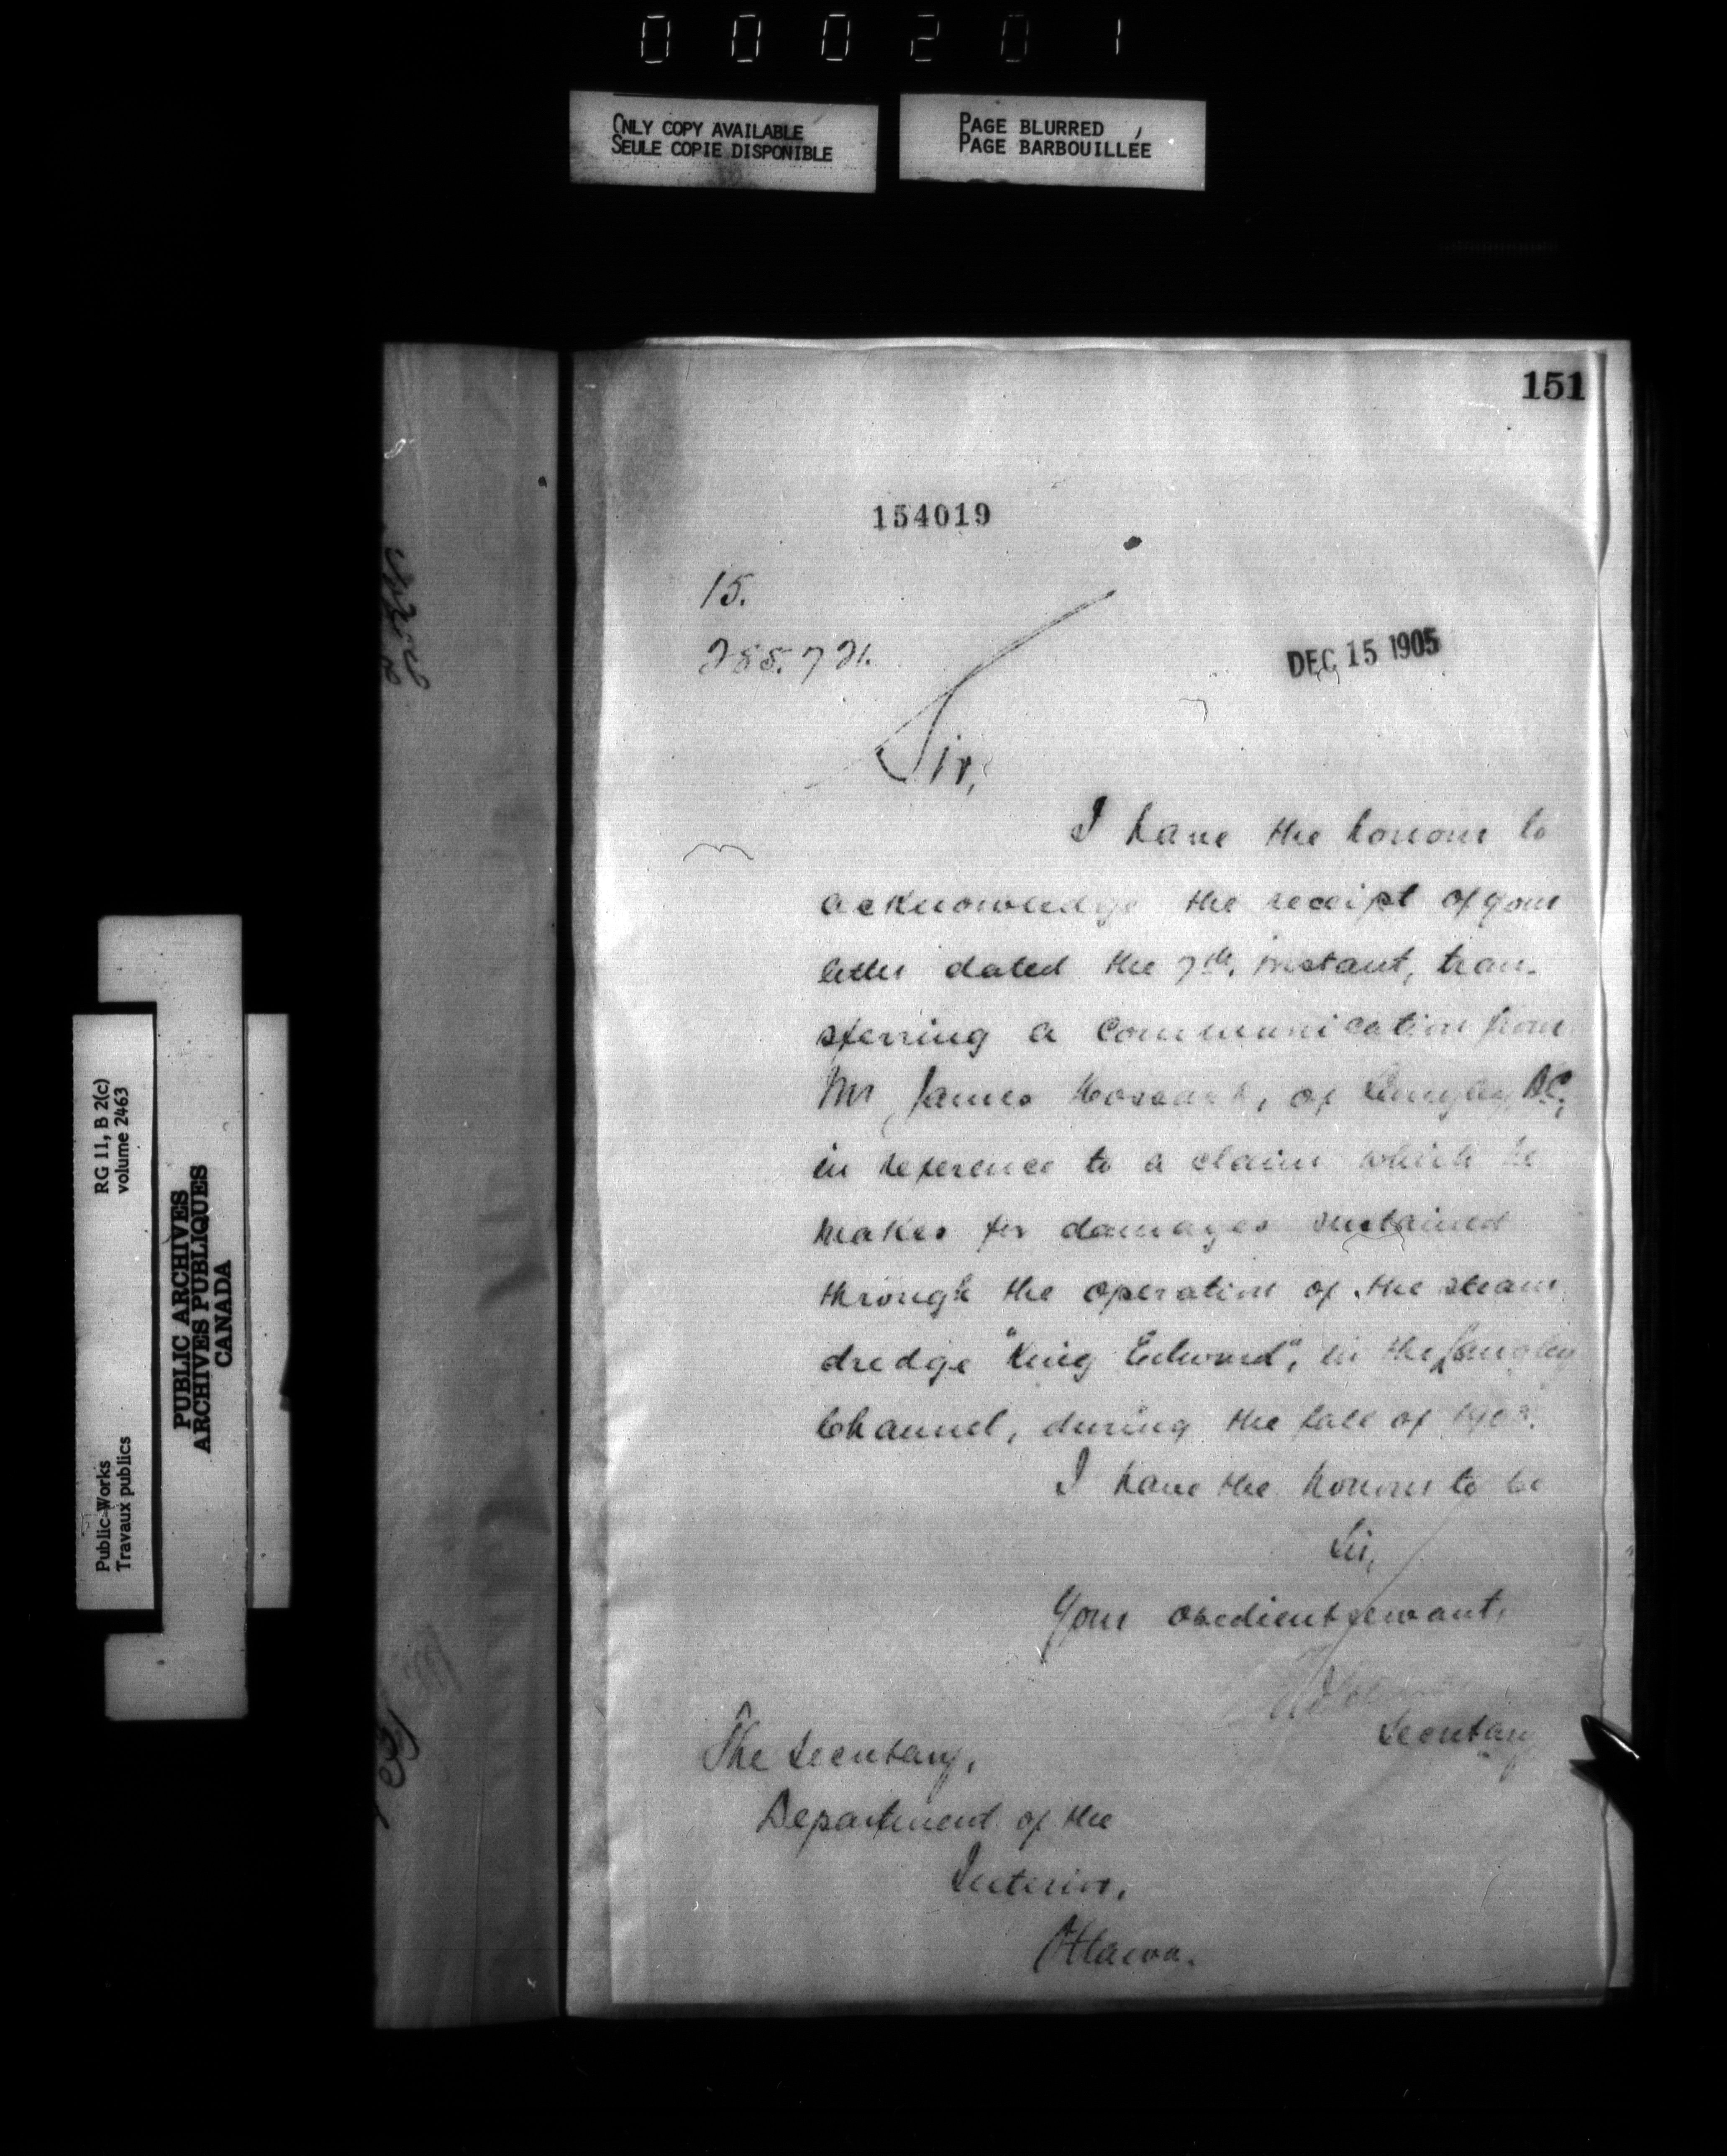 000201
ONLY COPY AVAILABLE
SEULE COPIE DISPONIBLE
PAGE BLURRED
PAGE BARBOUILLÉE
151
154019
15.
285.721.
DEC 15 1905
Sir,
I have the honour to
acknowledge the receipt of your
letter dated the 7th. instant, tran-
sferring a communication from
Mr James, of Langley, B.C.,
in reference to a claim which he
makes for damages sustained
through the operation of the steam
dredge "King Edward", in the Langley
Channel, during the fall of
I have the honour to be
Sir,
Your obedient servant,
Secretary
The Secretary,
Department of the
Interior,
Ottawa.
RG 11, B 2(c)
volume 2463
Public Works
Travaux publics
PUBLIC ARCHIVES
ARCHIVES PUBLIQUES
CANADA